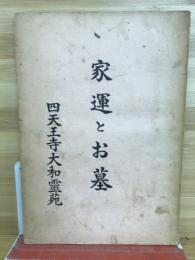 家運とお墓
四天王寺大和靈苑